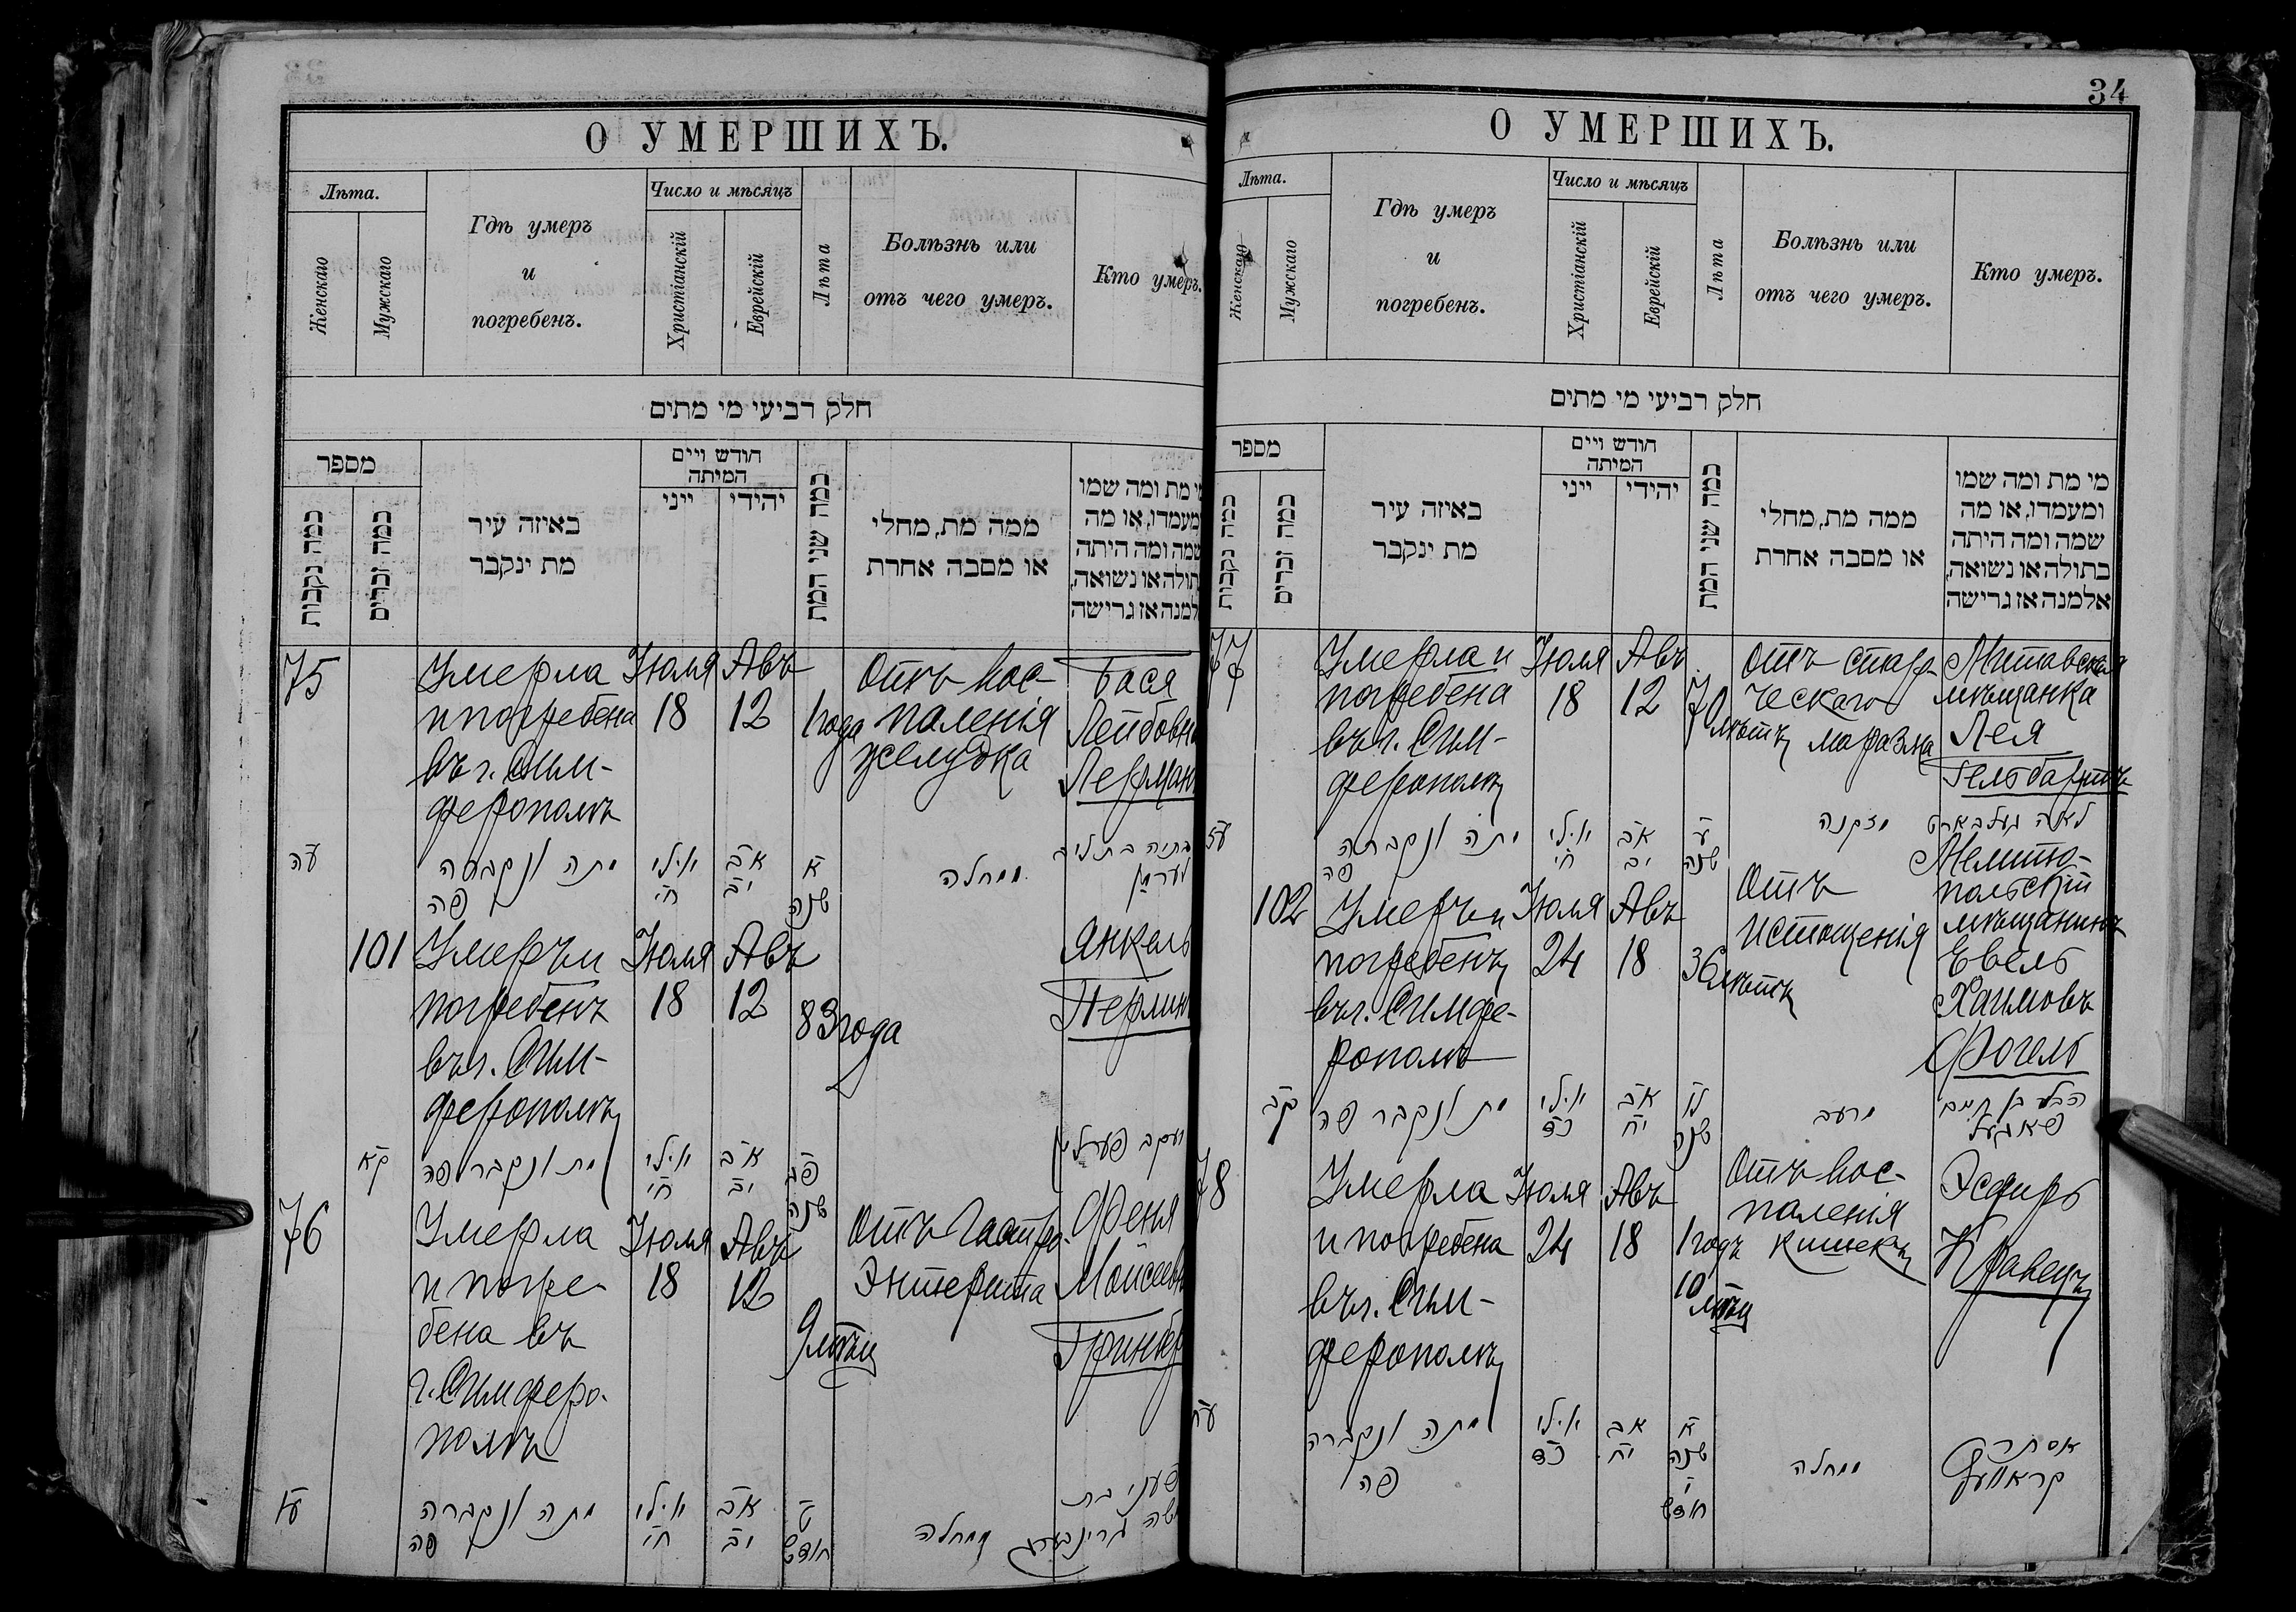 О УМЕРШИХЪ.
Лѣта.
Женскаго
Мужскаго
Гдѣ умеръ
и
погребенъ.
Число и мѣсяцъ
Христіанскій
Еврейскій
Лѣта
Болѣзнь или
отъ чего умеръ.
Кто умеръ.
חלק רביעי מי מתים
מספר
כמה נקבות
כמה זכרים
באיזה עיר
מת ינקבר
חודש ויים
המיתה
ייני
יהידי
כמה שני המת
ממה מת, מחלי
או מסבה אחרת
מי מת ומה שמו
ומעמדו, או מה
שמה ומה היתה
בתולה או נשואה,
אלמנה אז גרישה
75
Умерла
и погребена
въ г. Сим-
ферополѣ
Іюля
18
Авъ
12
1 года
Отъ вос-
паленія
желудка
Бася
Лейбовна
Лерман
עה
מתה ונקברה
פה
יולי
חי
אב
יב
א
שנה
ממחלה
101
Умеръ и
погребенъ
въ г. Сим-
ферополѣ
Іюля
18
Авъ
12
83 года
Янкель
Перлин
קא
מת ונקבר פה
יולי
חי
אב
יב
פג
שנה
יעקב פערלין
76
Умерла
и погре-
бена въ
г. Симферо-
полѣ
Іюля
18
Авъ
12
9 мѣсяц
Отъ Гастро-
Энтерита
Феня
Мойсеевн
Гринбер
עו
מתה ונקברה
פה
יולי
חי
אב
יב
ט
חודש
ממחלה
פעני בת
משה גרינבערג
34
О УМЕРШИХЪ.
Лѣта.
Женскаго
Мужскаго
Гдѣ умеръ
и
погребенъ.
Число и мѣсяцъ
Христіанскій
Еврейскій
Лѣта
Болѣзнь или
отъ чего умеръ.
Кто умеръ.
חלק רביעי מי מתים
מספר
כמה נקבות
כמה זכרים
באיזה עיר
מת ינקבר
חודש ויים
המיתה
ייני
יהידי
כמה שני המת
ממה מת, מחלי
או מסבה אחרת
מי מת ומה שמו
ומעמדו, או מה
שמה ומה היתה
בתולה או נשואה,
אלמנה אז גרישה
77
Умерла и
погребена
въ г. Сим-
ферополѣ
Іюля
18
Авъ
12
70 лѣтъ
Отъ старче-
ческаго
маразма
Митавская
мѣщанка
Лея
Гельбартъ
עז
מתה ונקברה
פה
יולי
חי
אב
יב
ע
שנה
מזקנה
לאה געלבארט
102
Умеръ и
погребенъ
въ г. Симфе-
рополѣ
Іюля
24
Авъ
18
36 лѣтъ
Отъ
истощенія
Мелито-
польскій
мѣщанинъ
Евель
Хаимовъ
Фогель
קב
מת ונקבר פה
יולי
כד
אב
יח
לו
שנה
מרעב
פאגעל
78
Умерла
и погребена
въ г. Сим-
ферополѣ
Іюля
24
Авъ
18
1 годъ
10
мѣсяц
Отъ вос-
паленія
кишекъ
Эсфирь
Кравецъ
עח
מתה ונקברה
פה
יולי
כד
אב
יח
א
שנה
י
חודש
ממחלה
אסתר
קראוועץ